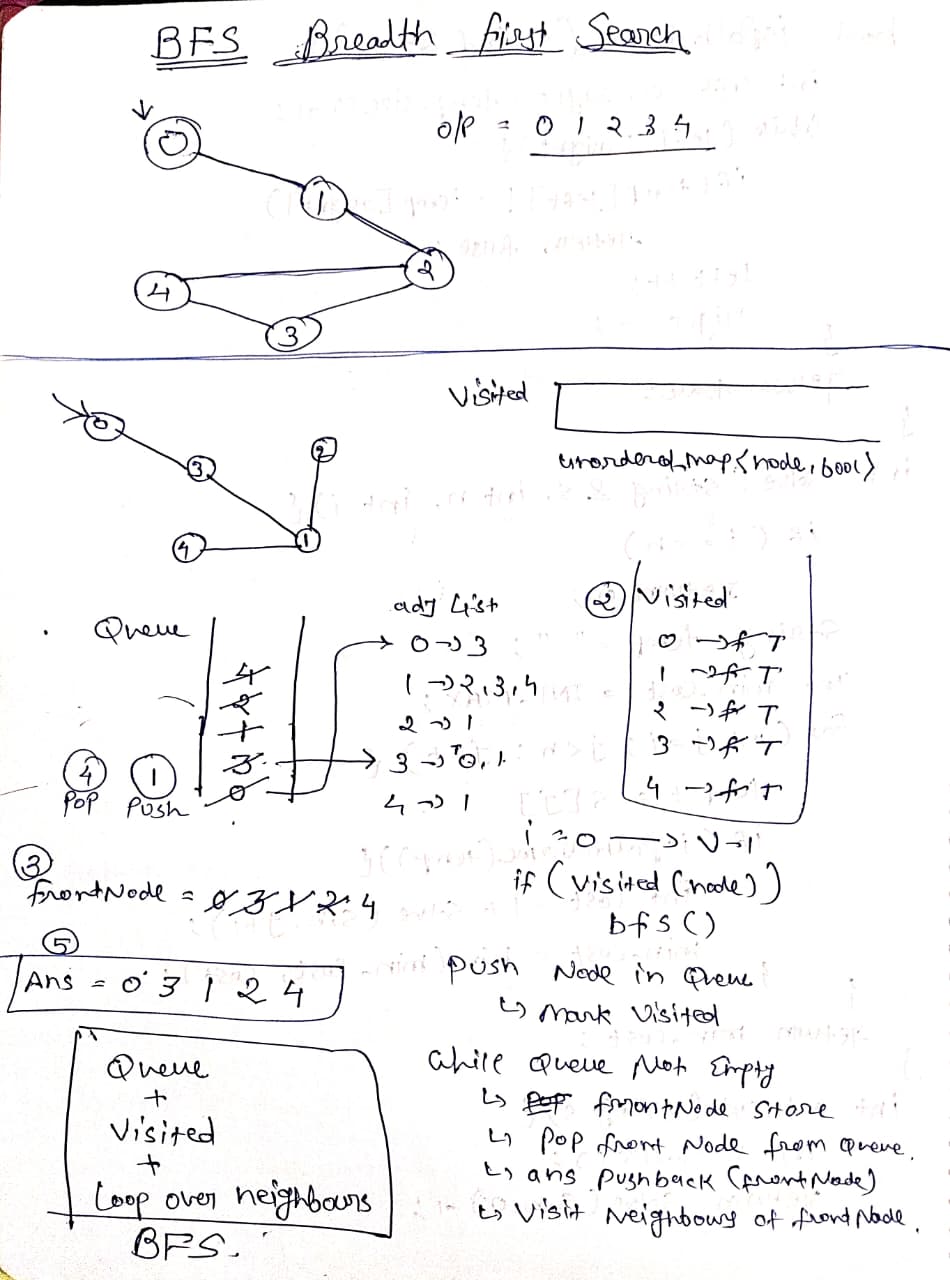 BFS Breadth first Search
O/P = 0 1 2 3 4
0
1
2
4
3
Visited
unordered_map<node, bool>
0
3
2
4
1
Queue
4
2
1
3
0
④ Pop
① Push
adj List
0 → 3
1 → 2,3,4
2 → 1
3 → 0,1
4 → 1
② Visited
0 → f T
1 → f T
2 → f T
3 → f T
4 → f T
i = 0 → V-1
if (visited (node))
bfs()
③
frontNode = 0 3 1 2 4
⑤
Ans = 0 3 1 2 4
Push Node in Queue
↳ mark Visited
While Queue Not Empty
↳ Pop frontNode Store
↳ Pop front Node from Queue.
↳ ans Pushback (frontNode)
↳ Visit Neighbours of front Node.
Queue
+
Visited
+
Loop over neighbours
BFS.